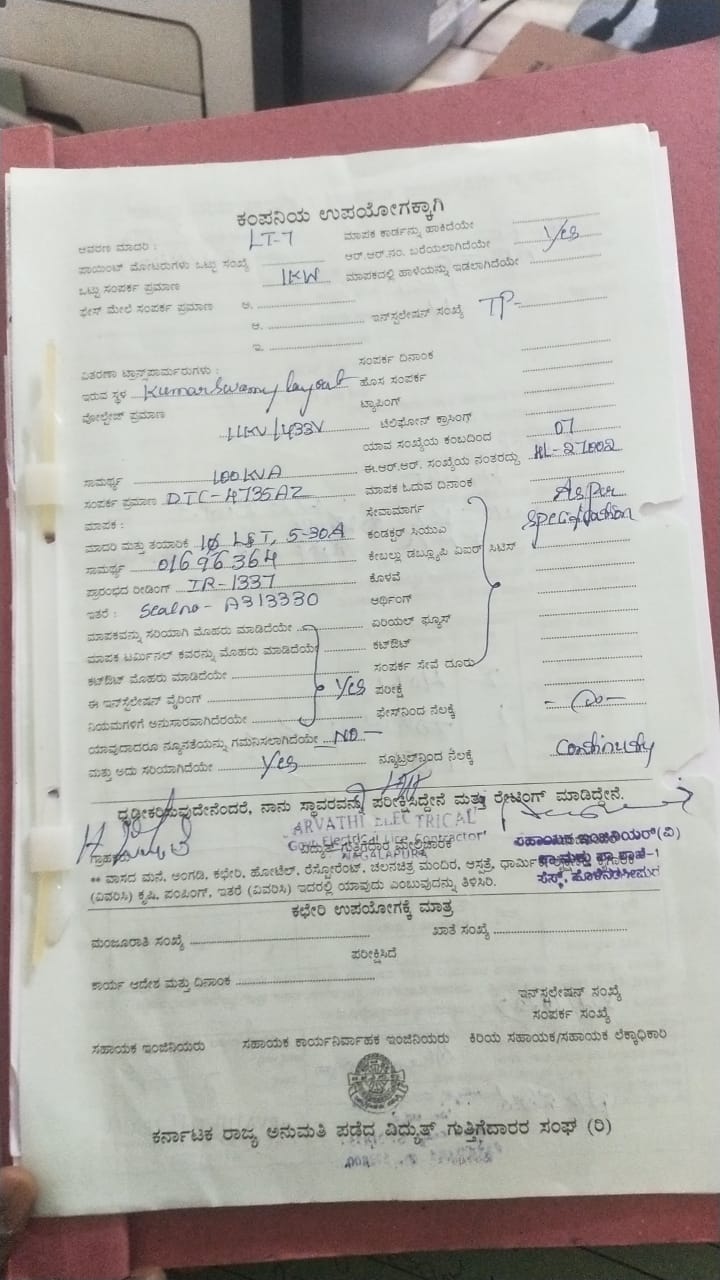 ಕಂಪನಿಯ ಉಪಯೋಗಕ್ಕಾಗಿ
ಆವರಣ ಮಾದರಿ : LT-7 ಮಾಪಕ ಕಾರ್ಡನ್ನು ಹಾಕಿದೆಯೇ
ಪಾಯಿಂಟ್ ಮೋಟರುಗಳು ಒಟ್ಟು ಸಂಖ್ಯೆ ಆರ್.ಆರ್.ನಂ. ಬರೆಯಲಾಗಿದೆಯೇ Yes
ಒಟ್ಟು ಸಂಪರ್ಕ ಪ್ರಮಾಣ 1KW ಮಾಪಕದಲ್ಲಿ ಹಾಳೆಯನ್ನು ಇಡಲಾಗಿದೆಯೇ
ಫೇಸ್ ಮೇಲೆ ಸಂಪರ್ಕ ಪ್ರಮಾಣ ಅ.
ಆ. ಇನ್‌ಸ್ಟಲೇಷನ್ ಸಂಖ್ಯೆ TP-
ಇ.
ವಿತರಣಾ ಟ್ರಾನ್ಸ್‌ಪಾರ್ಮರುಗಳು : ಸಂಪರ್ಕ ದಿನಾಂಕ
ಇರುವ ಸ್ಥಳ Kumarswamy layout ಹೊಸ ಸಂಪರ್ಕ
ವೋಲ್ಟೇಜ್ ಪ್ರಮಾಣ ಟ್ಯಾಪಿಂಗ್
11KV/433V ಟೆಲಿಫೋನ್ ಕ್ರಾಸಿಂಗ್
ಯಾವ ಸಂಖ್ಯೆಯ ಕಂಬದಿಂದ 07
ಸಾಮರ್ಥ್ಯ 100KVA ಈ.ಆರ್.ಆರ್. ಸಂಖ್ಯೆಯ ನಂತರದ್ದು HL-27002
ಸಂಪರ್ಕ ಪ್ರಮಾಣ DTC-4735AZ ಮಾಪಕ ಓದುವ ದಿನಾಂಕ
ಮಾಪಕ : ಸೇವಾಮಾರ್ಗ As per
ಮಾದರಿ ಮತ್ತು ತಯಾರಿಕೆ 1φ L&T, 5-30A ಕಂಡಕ್ಟರ್ ಸಿಯುಎ specification
ಸಾಮರ್ಥ್ಯ 01696364 ಕೇಬಲ್ಲು ಡಬ್ಲ್ಯೂಪಿ ಏಐರ್ ಸಿಟಿಸ್
ಪ್ರಾರಂಭದ ರೀಡಿಂಗ್ IR-1337 ಕೊಳವೆ
ಇತರೆ : Seal no- A313330 ಆರ್ಥಿಂಗ್
ಮಾಪಕವನ್ನು ಸರಿಯಾಗಿ ಮೊಹರು ಮಾಡಿದೆಯೇ ಏರಿಯಲ್ ಫ್ಯೂಸ್
ಮಾಪಕ ಟರ್ಮಿನಲ್ ಕವರನ್ನು ಮೊಹರು ಮಾಡಿದೆಯೇ ಕಟ್‌ಔಟ್
ಕಟ್‌ಔಟ್ ಮೊಹರು ಮಾಡಿದೆಯೇ ಸಂಪರ್ಕ ಸೇವೆ ದೂರು
ಈ ಇನ್‌ಸ್ಟಲೇಷನ್ ವೈರಿಂಗ್ Yes ಪರೀಕ್ಷೆ
ನಿಯಮಗಳಿಗೆ ಅನುಸಾರವಾಗಿದೆಯೇ ಫೇಸ್‌ನಿಂದ ನೆಲಕ್ಕೆ
ಯಾವುದಾದರೂ ನ್ಯೂನತೆಯನ್ನು ಗಮನಿಸಲಾಗಿದೆಯೇ NO-
ಮತ್ತು ಅದು ಸರಿಯಾಗಿದೆಯೇ Yes ನ್ಯೂಟ್ರಲ್‌ನಿಂದ ನೆಲಕ್ಕೆ Continuity
ಧೃಡೀಕರಿಸುವುದೇನೆಂದರೆ, ನಾನು ಸ್ಥಾವರವನ್ನು ಪರೀಕ್ಷಿಸಿದ್ದೇನೆ ಮತ್ತು ರೇಟಿಂಗ್ ಮಾಡಿದ್ದೇನೆ.
ARVATHI ELECTRICAL
Govt Electrical Lice Contractor
NAGALAPURA
ಗ್ರಾಹಕರು ವಿದ್ಯುತ್ ಗುತ್ತಿಗೆದಾರ ಮೇಲ್ವಿಚಾರಕ ಸಹಾಯಕ ಇಂಜಿನಿಯರ್(ವಿ)
** ವಾಸದ ಮನೆ, ಅಂಗಡಿ, ಕಛೇರಿ, ಹೋಟೆಲ್, ರೆಸ್ಟೋರೆಂಟ್, ಚಲನಚಿತ್ರ ಮಂದಿರ, ಆಸ್ಪತ್ರೆ, ಧಾರ್ಮಿಕ
(ವಿವರಿಸಿ) ಕೃಷಿ, ಪಂಪಿಂಗ್, ಇತರೆ (ವಿವರಿಸಿ) ಇದರಲ್ಲಿ ಯಾವುದು ಎಂಬುವುದನ್ನು ತಿಳಿಸಿರಿ.
ಕಛೇರಿ ಉಪಯೋಗಕ್ಕೆ ಮಾತ್ರ
ಮಂಜೂರಾತಿ ಸಂಖ್ಯೆ ಖಾತೆ ಸಂಖ್ಯೆ
ಪರೀಕ್ಷಿಸಿದೆ
ಕಾರ್ಯ ಆದೇಶ ಮತ್ತು ದಿನಾಂಕ
ಇನ್‌ಸ್ಟಲೇಷನ್ ಸಂಖ್ಯೆ
ಸಂಪರ್ಕ ಸಂಖ್ಯೆ
ಸಹಾಯಕ ಇಂಜಿನಿಯರು ಸಹಾಯಕ ಕಾರ್ಯನಿರ್ವಾಹಕ ಇಂಜಿನಿಯರು ಕಿರಿಯ ಸಹಾಯಕ/ಸಹಾಯಕ ಲೆಕ್ಕಾಧಿಕಾರಿ
ಕರ್ನಾಟಕ ರಾಜ್ಯ ಅನುಮತಿ ಪಡೆದ ವಿದ್ಯುತ್ ಗುತ್ತಿಗೆದಾರರ ಸಂಘ (ರಿ)